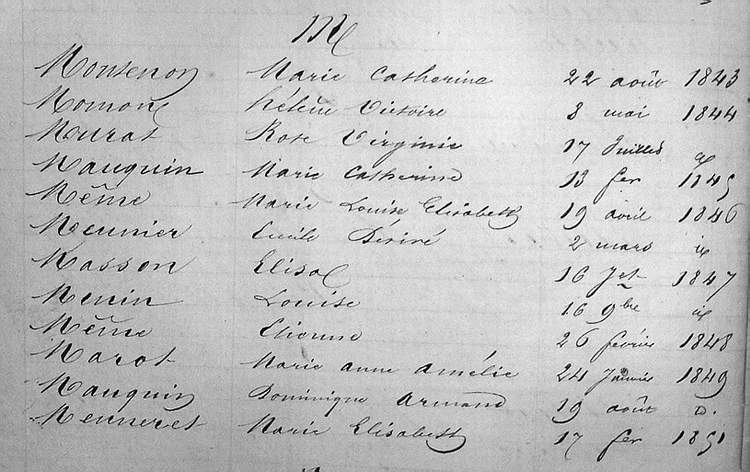 M
Monsenon Marie Catherine 22 août 1843
Momont hélène Victoire 8 mai 1844
Murat Rose Virginie 17 Juillet
Mauguin Marie Catherine 13 fer 1845
Même Marie Louise Elisabeth 19 avril 1846
Meunier Cecile Désiré 2 mars
Masson Elisa 16 Jet 1847
Menin Louise 16 9bre
Même Etienne 26 février 1848
Marot Marie anne amélie 24 Janvier 1849
Mauguin Dominique Armand 19 août D.
Menneret Marie Elisabeth 17 fer 1851